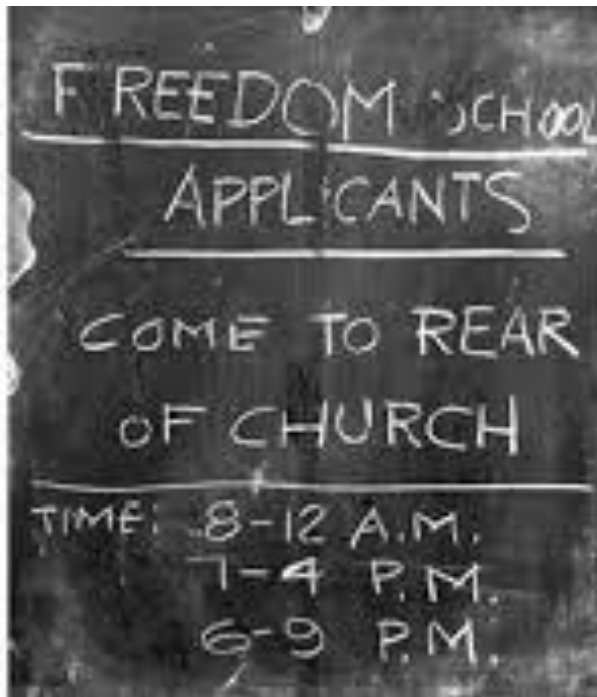 FREEDOM SCHOOL
APPLICANTS
COME TO REAR
OF CHURCH
TIME: 8-12 A.M.
7-4 P.M.
6-9 P.M.